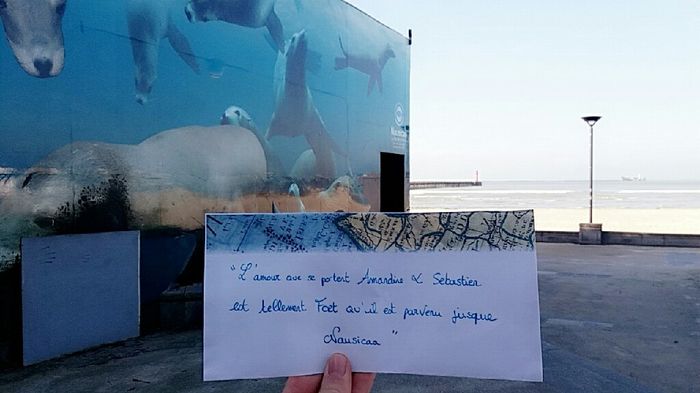 NAUSICAA
"L'amour que se portent Amandine & Sébastien
est tellement Fort qu'il est parvenu jusque
Nausicaa"